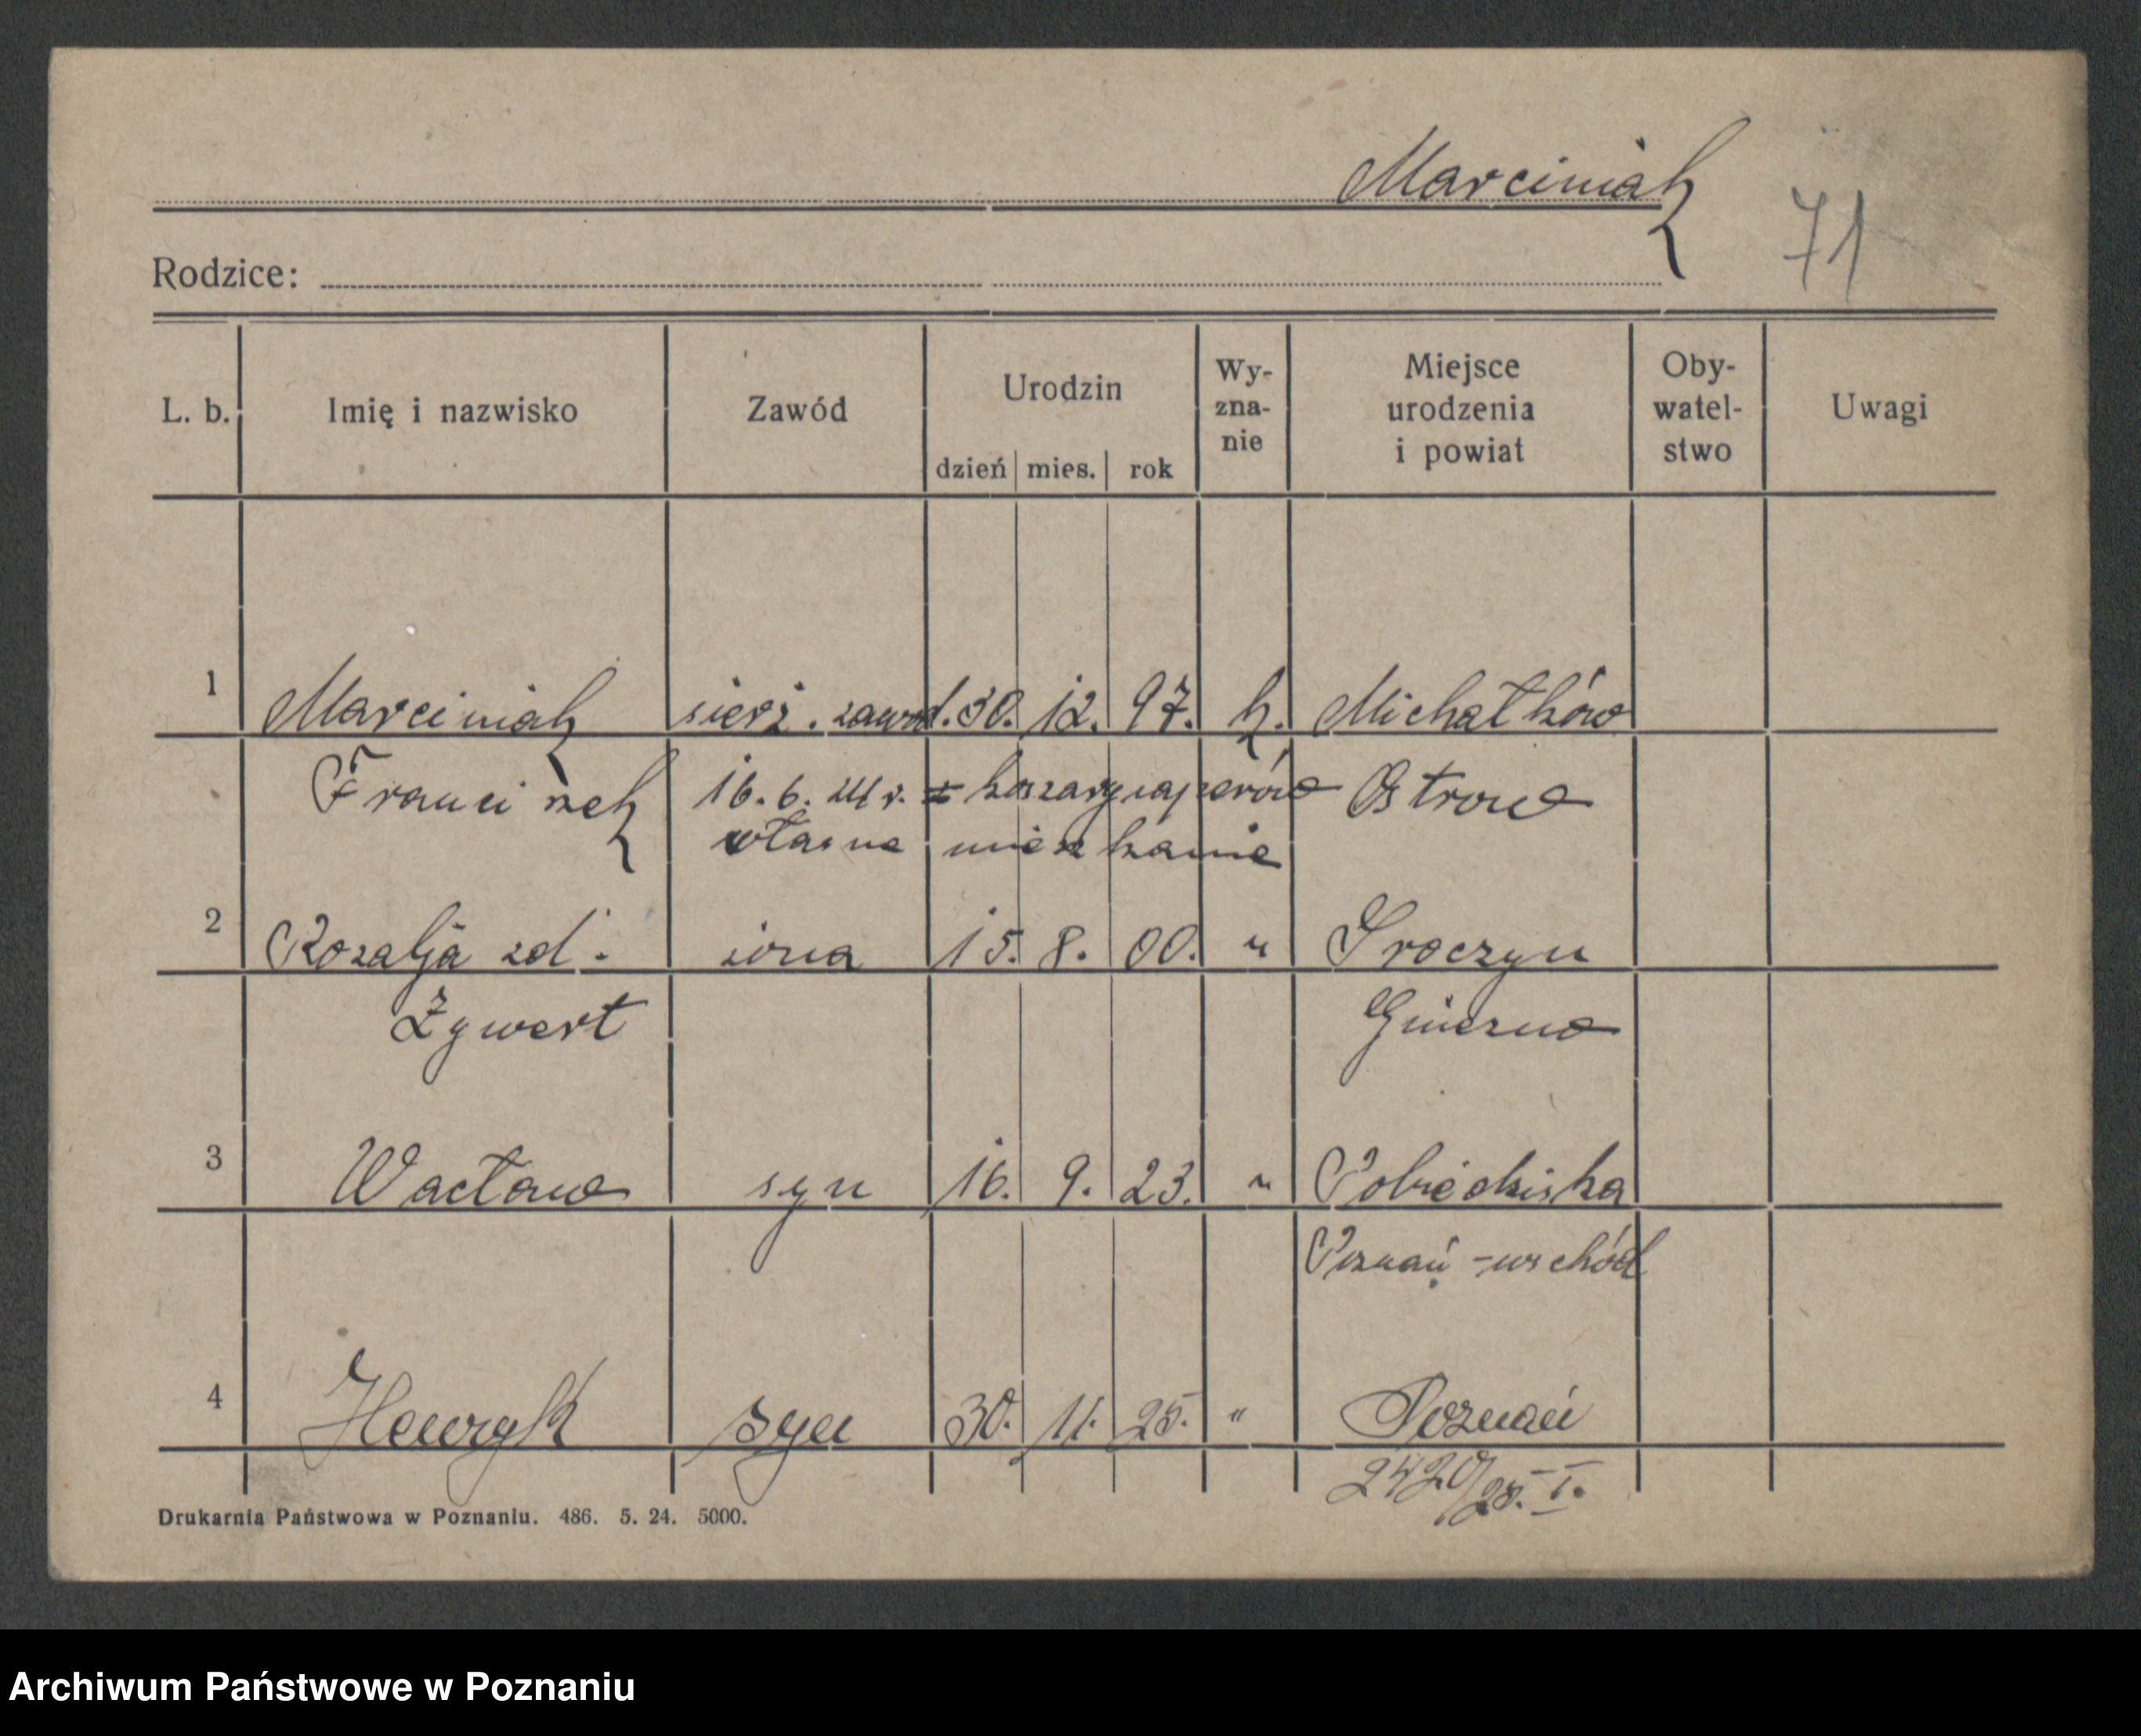 Marciniak
71
Rodzice:
L. b. Imię i nazwisko Zawód Urodzin dzień mies. rok Wy- zna- nie Miejsce urodzenia i powiat Oby- watel- stwo Uwagi
1 Marciniak sierż. zawod. 30. 12. 97. k. Michałków
Franciszek 16. 6. r. z koszary saperów Ostrow
własne mieszkanie
2 Rozalja zd. żona 15. 8. 00. " Sroczyn
Żywert Gniezno
3 Wacław syn 16. 9. 23. " Pobiedziska
Poznań-wschód
4 Henryk syn 30. 11. 25. " Poznań
2420/25. I.
Drukarnia Państwowa w Poznaniu. 486. 5. 24. 5000.
Archiwum Państwowe w Poznaniu